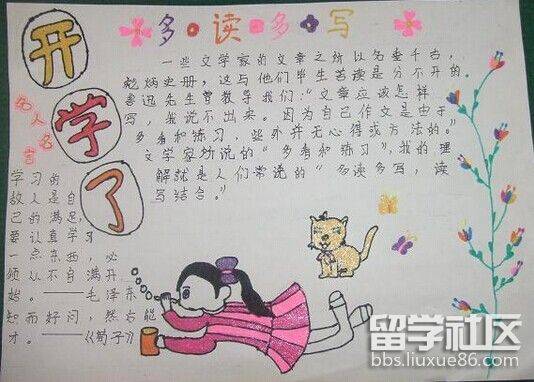 开
学
了
多读多写
一些文学家的文章之所以名垂千古,
彪炳史册,这与他们毕生苦读是分不开的。
鲁迅先生曾教导我们:"文章应该怎样
写,我说不出来。因为自己作文是由于
多看和练习,此外并无心得或方法的。"
文学家所说的"多看和练习",我的理
解就是人们常说的"多读多写,读
写结合。"
名人名言
学习的
敌人是自
己的满足,
要认真学习
一点东西,必
须以不自满开
始。——毛泽东
知而好问,然后能
才。——《荀子》
留学社区
bbs.liuxue86.com